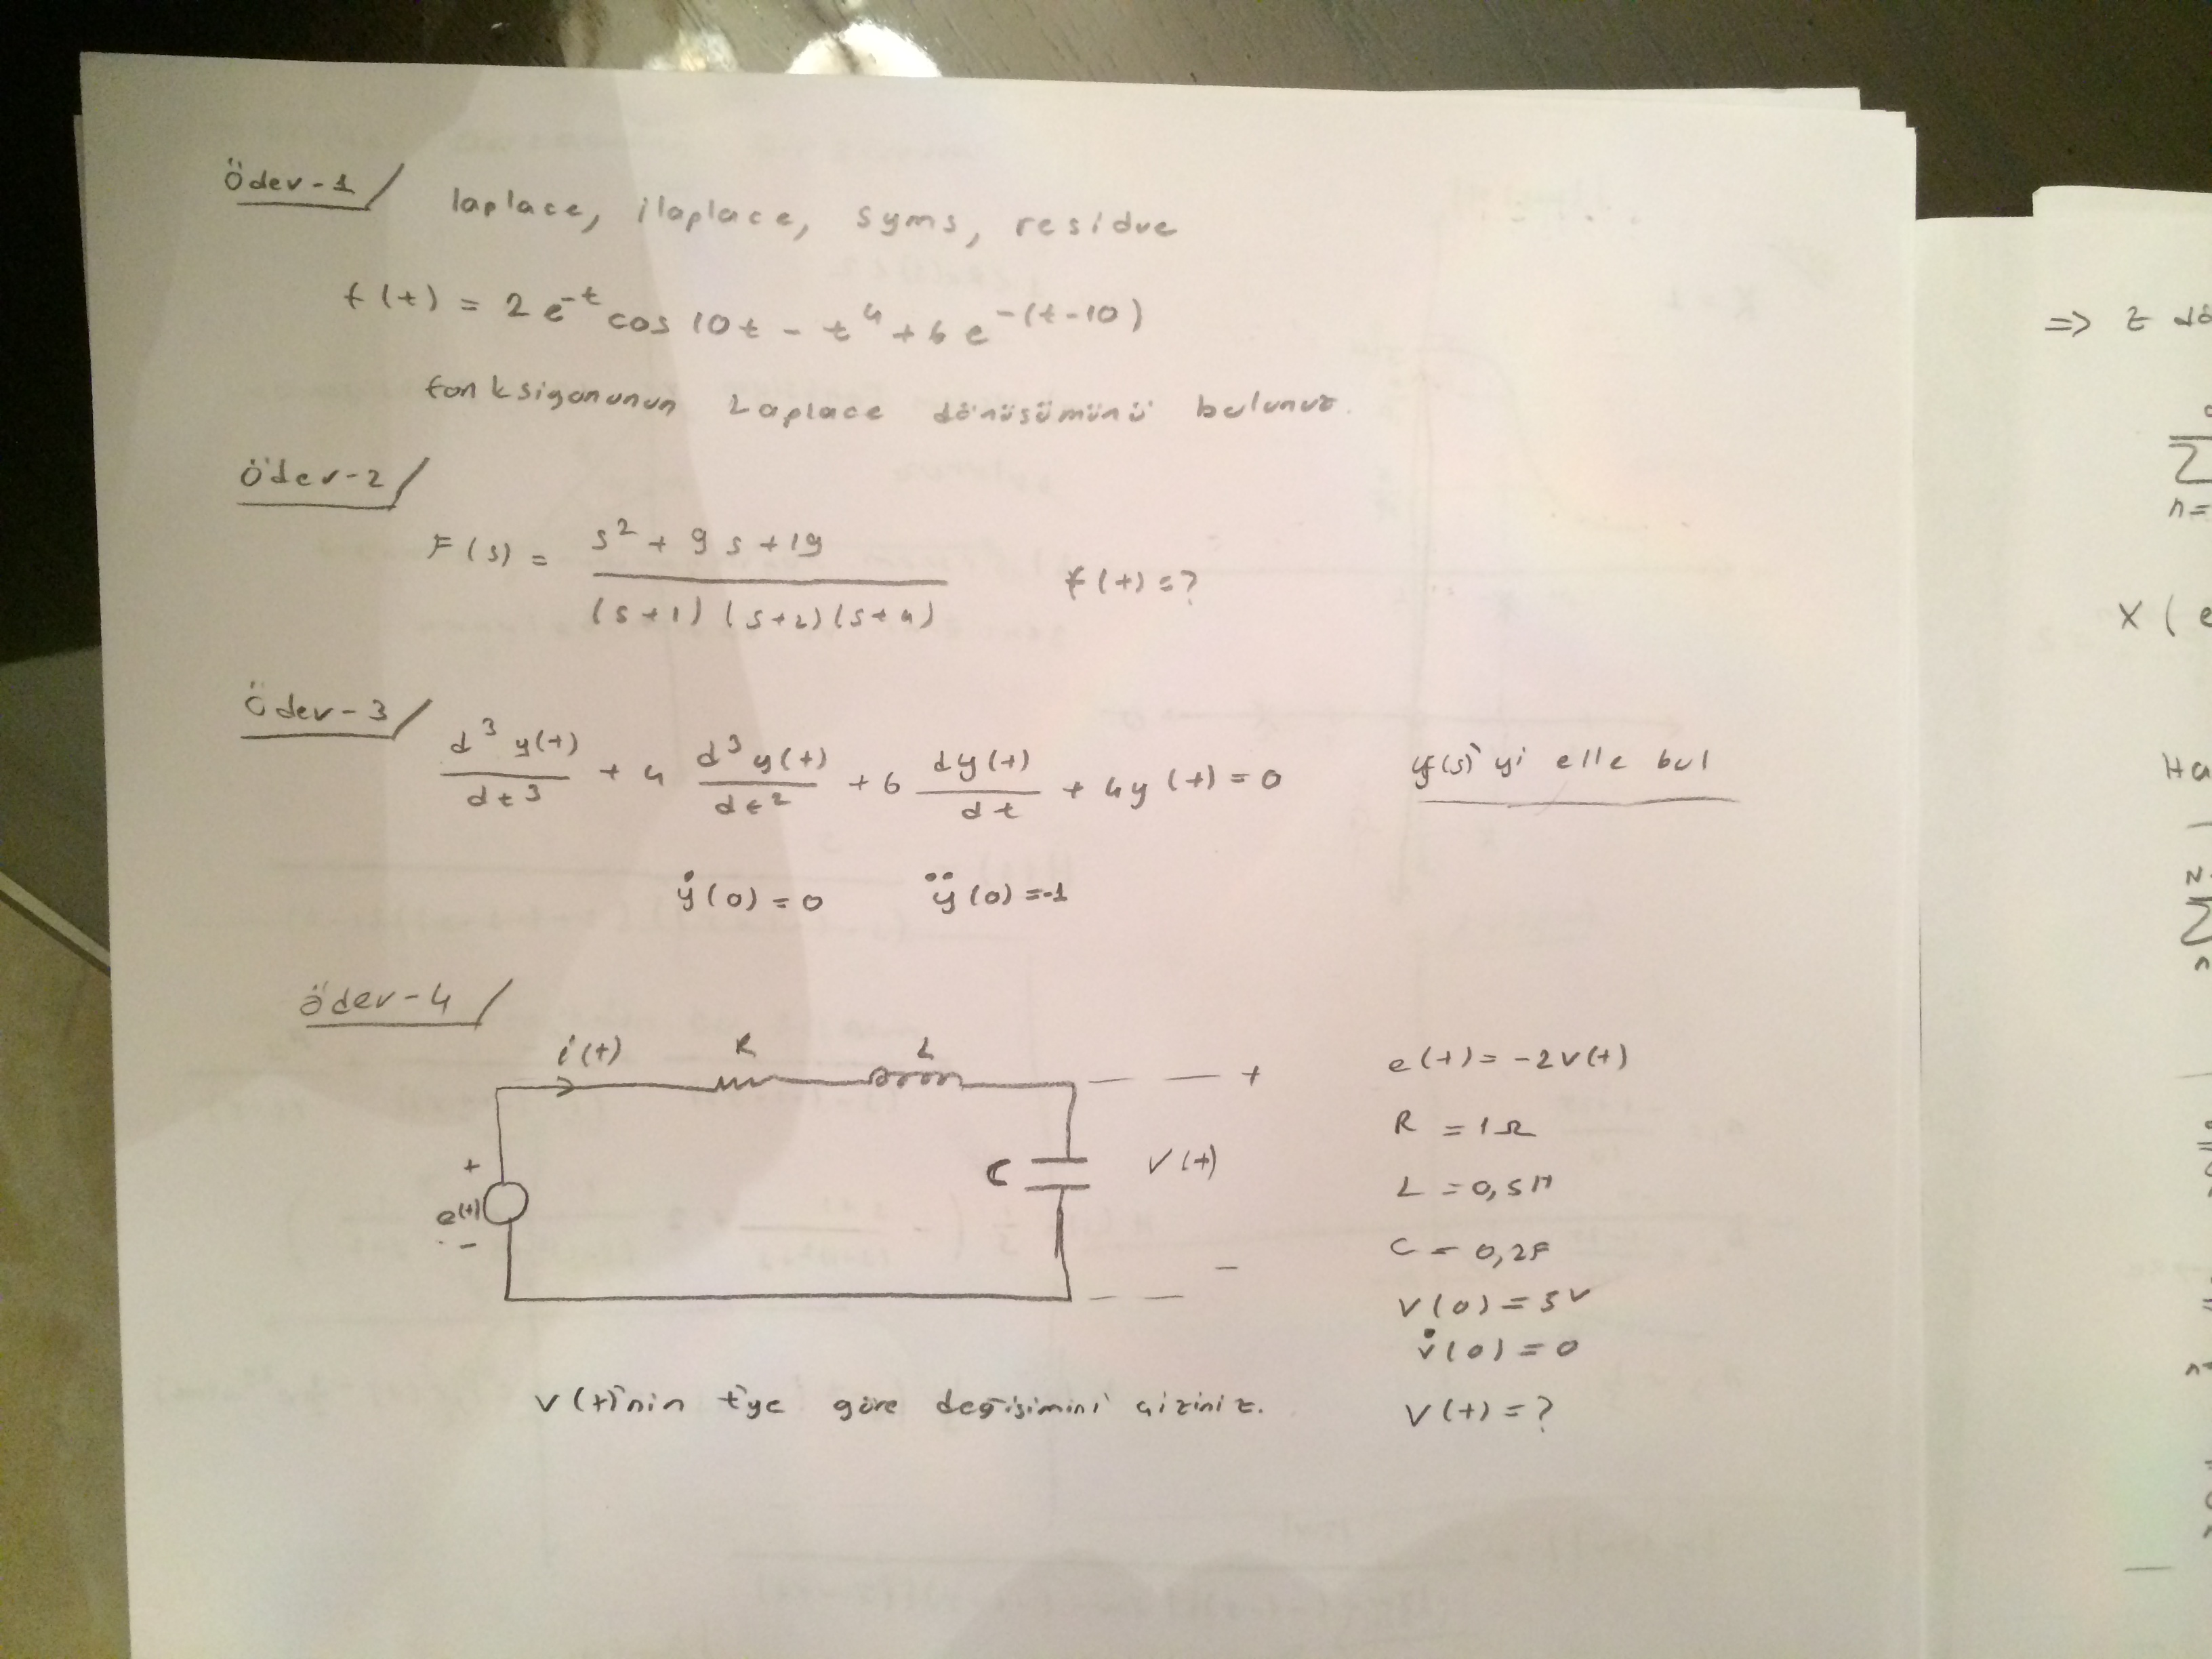 Ödev-1/ laplace, ilaplace, syms, residue
f(t) = 2 e^-t cos 10t - t^4 + 6 e^-(t-10)
fonksiyonunun Laplace dönüşümünü bulunuz.
Ödev-2/
F(s) = s^2 + 9s + 19 / (s+1)(s+2)(s+4) f(t)=?
Ödev-3/
d^3 y(t)/dt^3 + 4 d^3 y(t)/dt^2 + 6 dy(t)/dt + 4y(t) = 0 y(s)'yi elle bul
ẏ(0) = 0 ÿ(0) = -1
Ödev-4/
i(t) R L +
e(t) = -2v(t)
R = 1Ω
+ e(t) -
C V(t)
L = 0,5H
C = 0,2F
-
V(0) = 5V
v̇(0) = 0
V(t)'nin t'ye göre değişimini çiziniz. V(t) = ?
=> Z dö
n=
X(e
Ha